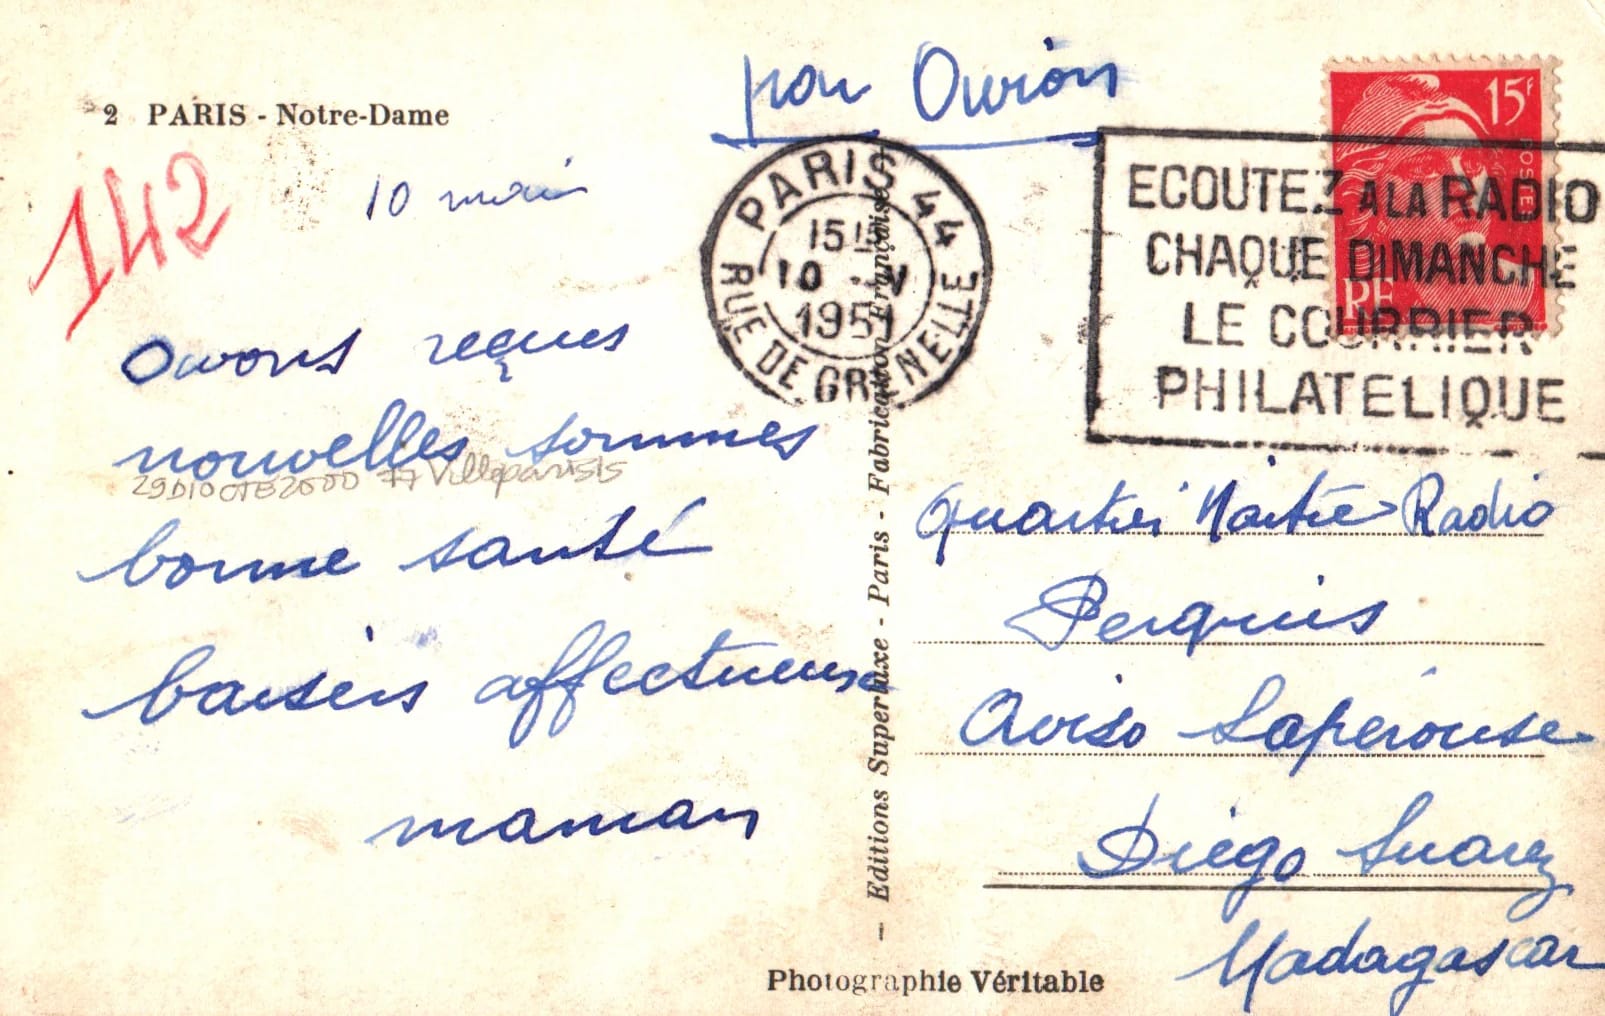 2 PARIS - Notre-Dame
par Avion
142
10 mai
PARIS 44
15 15
10 - V
1951
RUE DE GRENELLE
15F
POSTE
RF
ECOUTEZ A LA RADIO
CHAQUE DIMANCHE
LE COURRIER
PHILATELIQUE
Avons reçues
nouvelles sommes
29 DIOCTE 2000 77 Villeparisis
bonne santé
baisers affectueux
maman
Quartier Maitre Radio
Perquis
Aviso Lapérouse
Diégo Suarez
Madagascar
— Editions Superluxe - Paris - Fabrication Française
Photographie Véritable